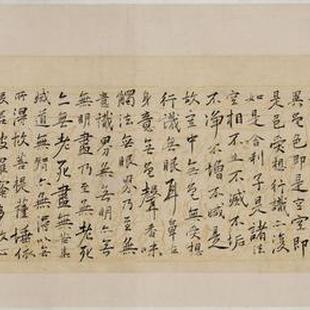 異色色即是空空即
是色受想行識亦復
如是舍利子是諸法
空相不生不滅不垢
不淨不增不減是
故空中無色無受想
行識無眼耳鼻舌
身意無色聲香味
觸法無眼界乃至無
意識界無無明亦無
無明盡乃至無老死
亦無老死盡無苦集
滅道無智亦無得以無
所得故菩提薩埵依
般若波羅蜜多故心